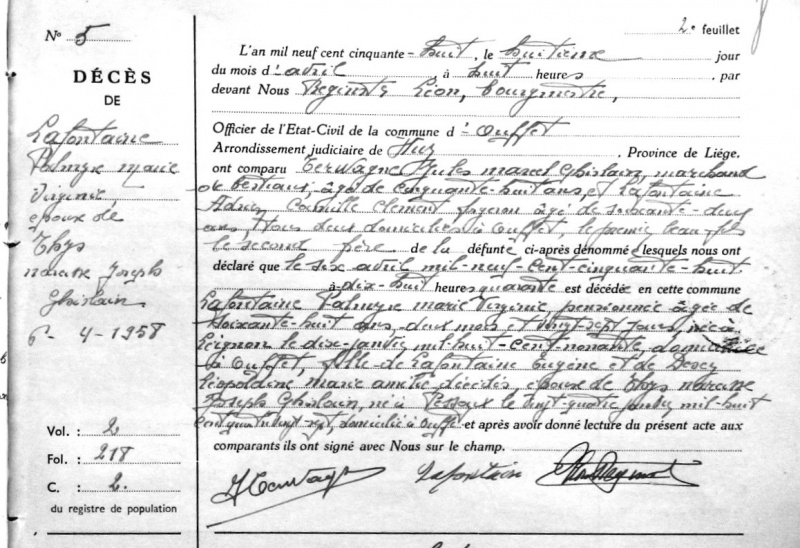 2e feuillet
N° 5
DÉCÈS
DE
Lafontaine
Palmyre Marie
Virginie,
épouse de
Thys
Narcisse Joseph
Ghislain
6 - 4 - 1958
Vol. : 2
Fol. : 218
C. : 2
du registre de population
L'an mil neuf cent cinquante-huit, le huitième jour
du mois d'avril, à huit heures, par
devant Nous Léon, bourgmestre,
Officier de l'Etat-Civil de la commune d'Ouffet
Arrondissement judiciaire de Huy, Province de Liége.
ont comparu Terwagne Jules Marcel Ghislain, marchand
de bestiaux, âgé de cinquante-huit ans, et Lafontaine
Camille Clement âgé de soixante-deux
ans, tous deux domiciliés à Ouffet, le premier beau-fils
le second frère de la défunte ci-après dénommé e lesquels nous ont
déclaré que le six avril mil-neuf-cent-cinquante-huit
à dix-huit heures quarante est décédée en cette commune
Lafontaine Palmyre Marie Virginie, pensionnée âgée de
soixante-huit ans, deux mois et vingt-sept jours, née à
Leignon le dix janvier mil-huit-cent-nonante, domiciliée
à Ouffet, fille de Lafontaine Eugène et de
Léopoldine Marie Amélie, décédés, épouse de Thys Narcisse
Joseph Ghislain, né à Pessoux le vingt-quatre janvier mil-huit
cent quatre vingt sept, domicilié à Ouffet et après avoir donné lecture du présent acte aux
comparants ils ont signé avec Nous sur le champ.
J Terwagne Lafontaine